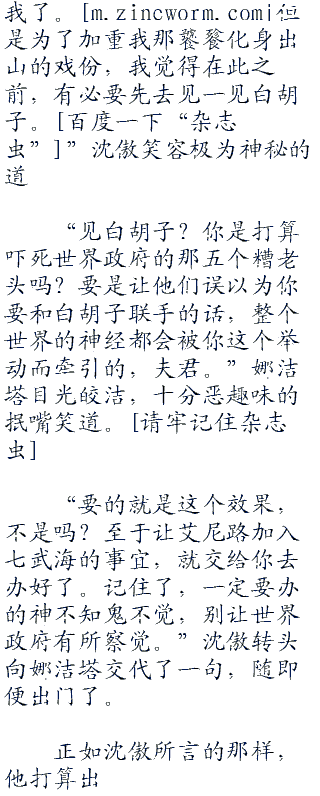 我了。[m.zincworm.com]但
是为了加重我那饕餮化身出
山的戏份，我觉得在此之
前，有必要先去见一见白胡
子。[百度一下“杂志
虫”]”沈傲笑容极为神秘的
道
“见白胡子？你是打算
吓死世界政府的那五个糟老
头吗？要是让他们误以为你
要和白胡子联手的话，整个
世界的神经都会被你这个举
动而牵引的，夫君。”娜洁
塔目光皎洁，十分恶趣味的
抿嘴笑道。[请牢记住杂志
虫]
“要的就是这个效果，
不是吗？至于让艾尼路加入
七武海的事宜，就交给你去
办好了。记住了，一定要办
的神不知鬼不觉，别让世界
政府有所察觉。”沈傲转头
向娜洁塔交代了一句，随即
便出门了。
正如沈傲所言的那样，
他打算出